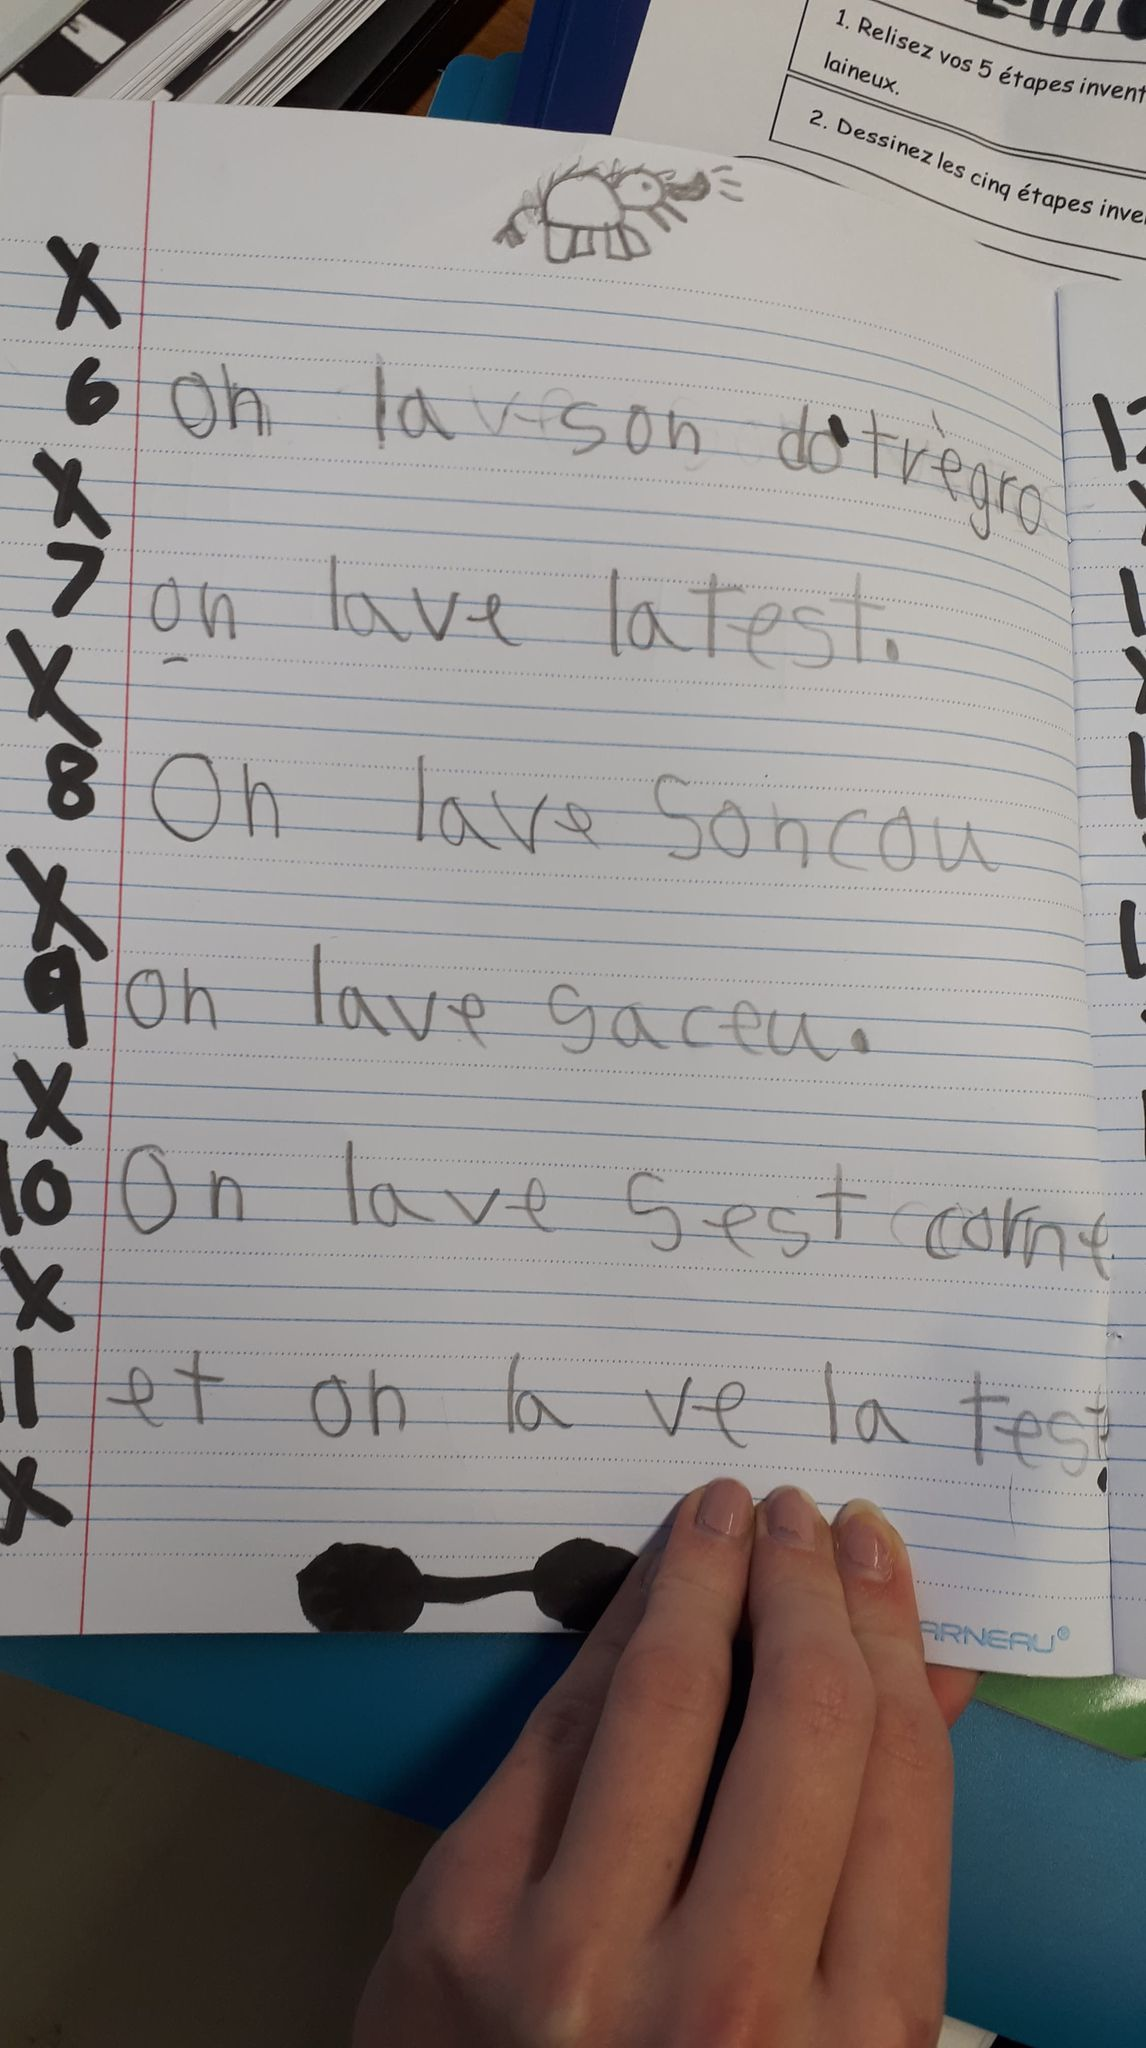 1. Relisez vos 5 étapes invent
laineux.
2. Dessinez les cinq étapes inve
X
6 On la son do trègro
X
7 on lave latest.
X
8 On lave Soncou
X
9 on lave saceu.
X
10 On lave sest corne
X
11 et on la ve la test.
X
ARNEAU®